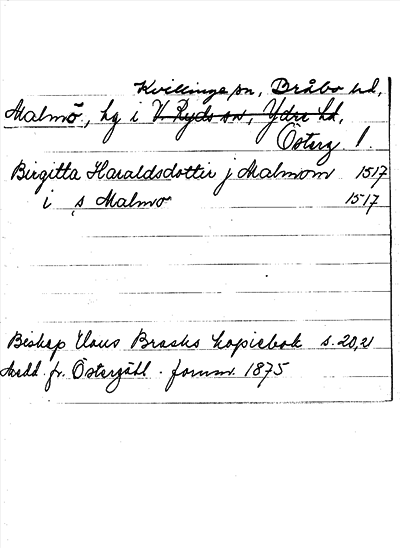 Kvillinge sn, Bråbo hd,
Malmö, hg i V. Ryds sn, Ydre hd,
Österg l.
Birgitta Haraldsdotter j Malmom 1517
i s Malmo 1517
Biskop Hans Brasks kopiebok s. 20, 21
Medd. fr. Östergötl. fornm. 1875